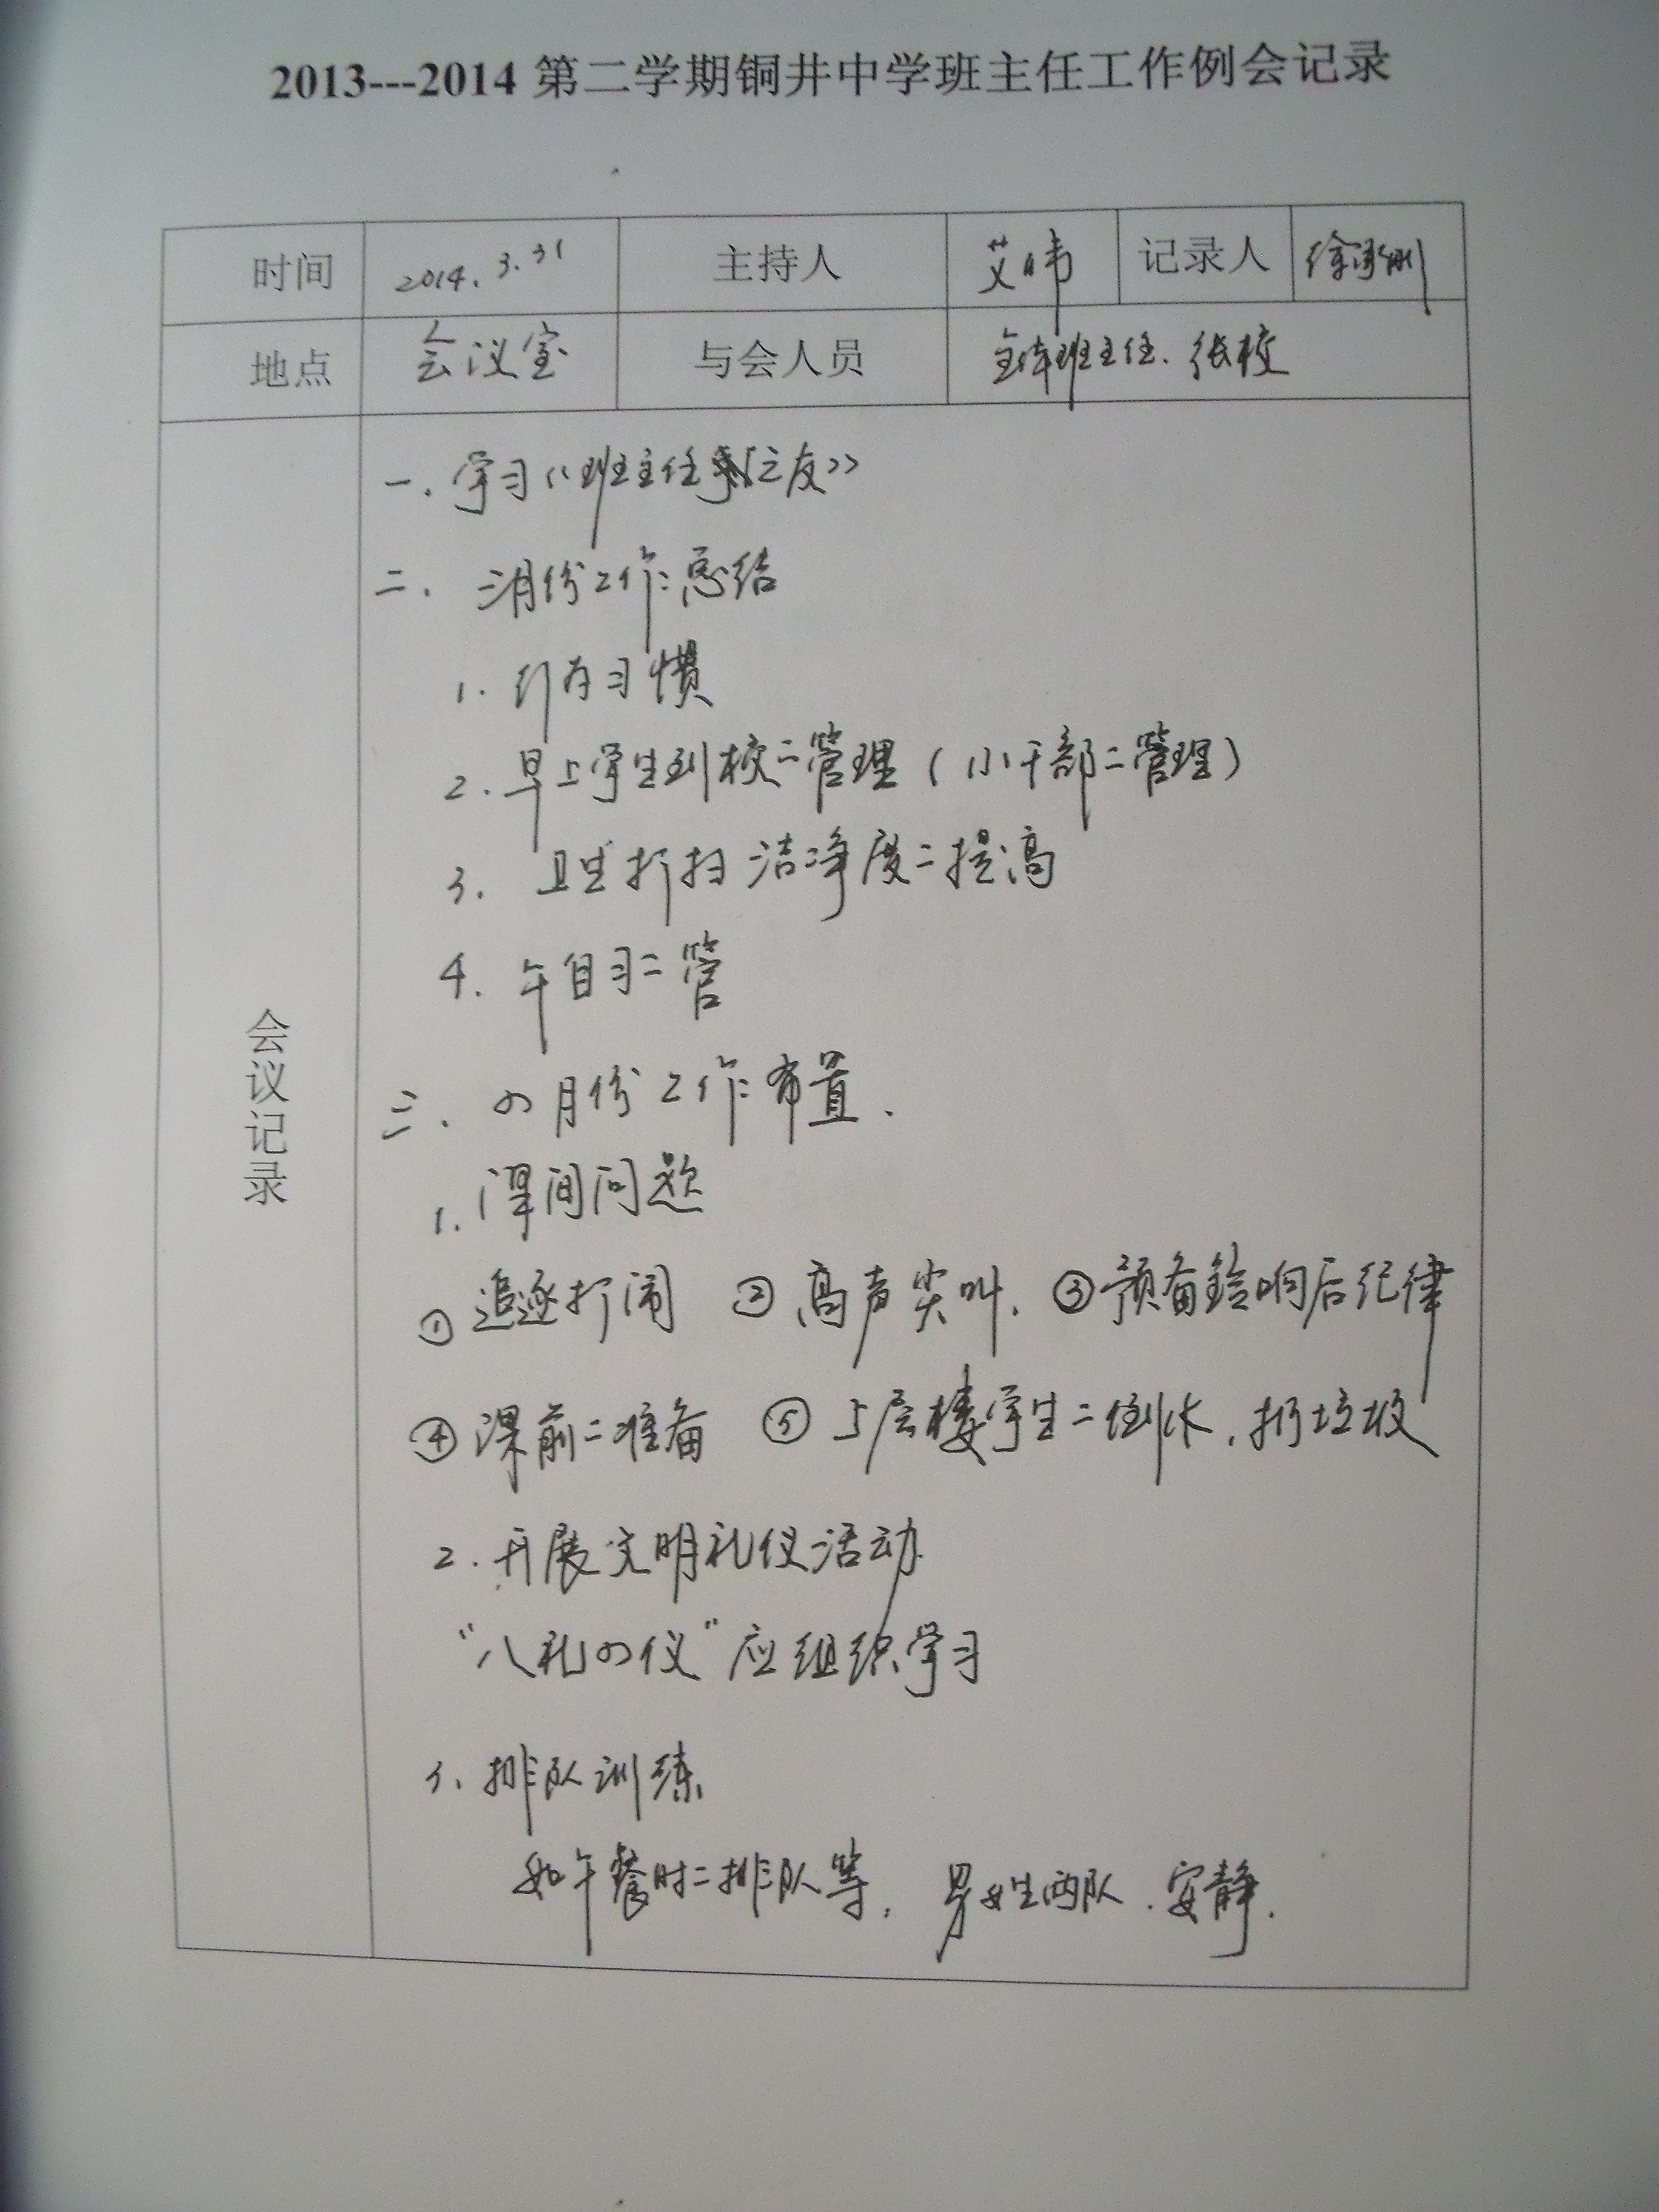 2013---2014 第二学期铜井中学班主任工作例会记录
时间 2014.3.31 主持人 艾 记录人 徐
地点 会议室 与会人员 全体班主任、张校
会议记录
一、学习《班主任之友》
二、三月份工作总结
1. 行为习惯
2. 早上学生到校二管理（小干部二管理）
3. 卫生打扫洁净度二提高
4. 午自习二管
三、四月份工作布置.
1. 课间问题
① 追逐打闹 ② 高声尖叫、③ 预备铃响后纪律
④ 课前二准备 ⑤ 5层楼学生二倒水，扔垃圾
2. 开展文明礼仪活动
“八礼四仪”应组织学习
3、排队训练
如午餐时二排队等，男女生两队、安静.